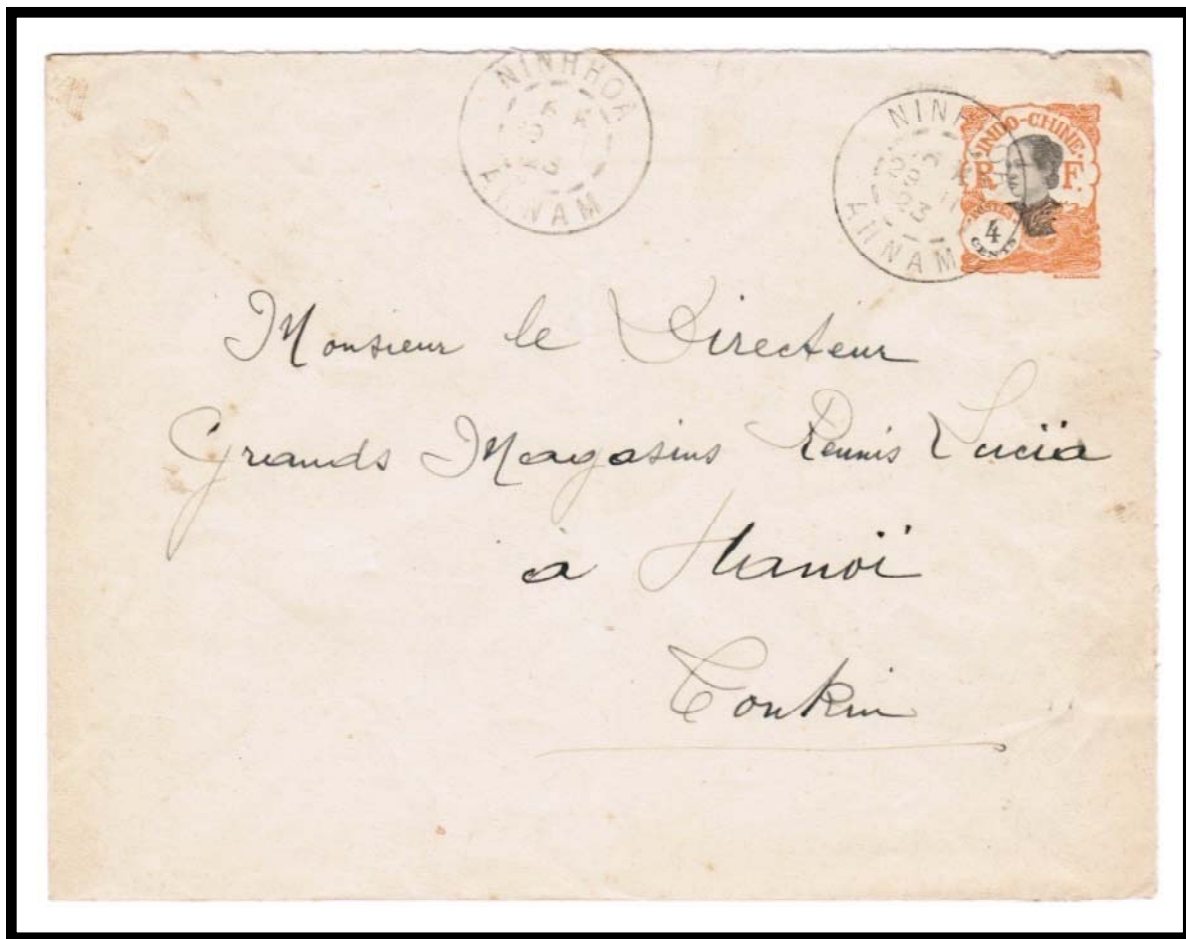 NINHHOA
ANNAM
NINH
ANNAM
INDO-CHINE
R F.
POSTES
4
CENTS
Monsieur le Directeur
Grands Magasins Réunis
à Hanoï
Tonkin